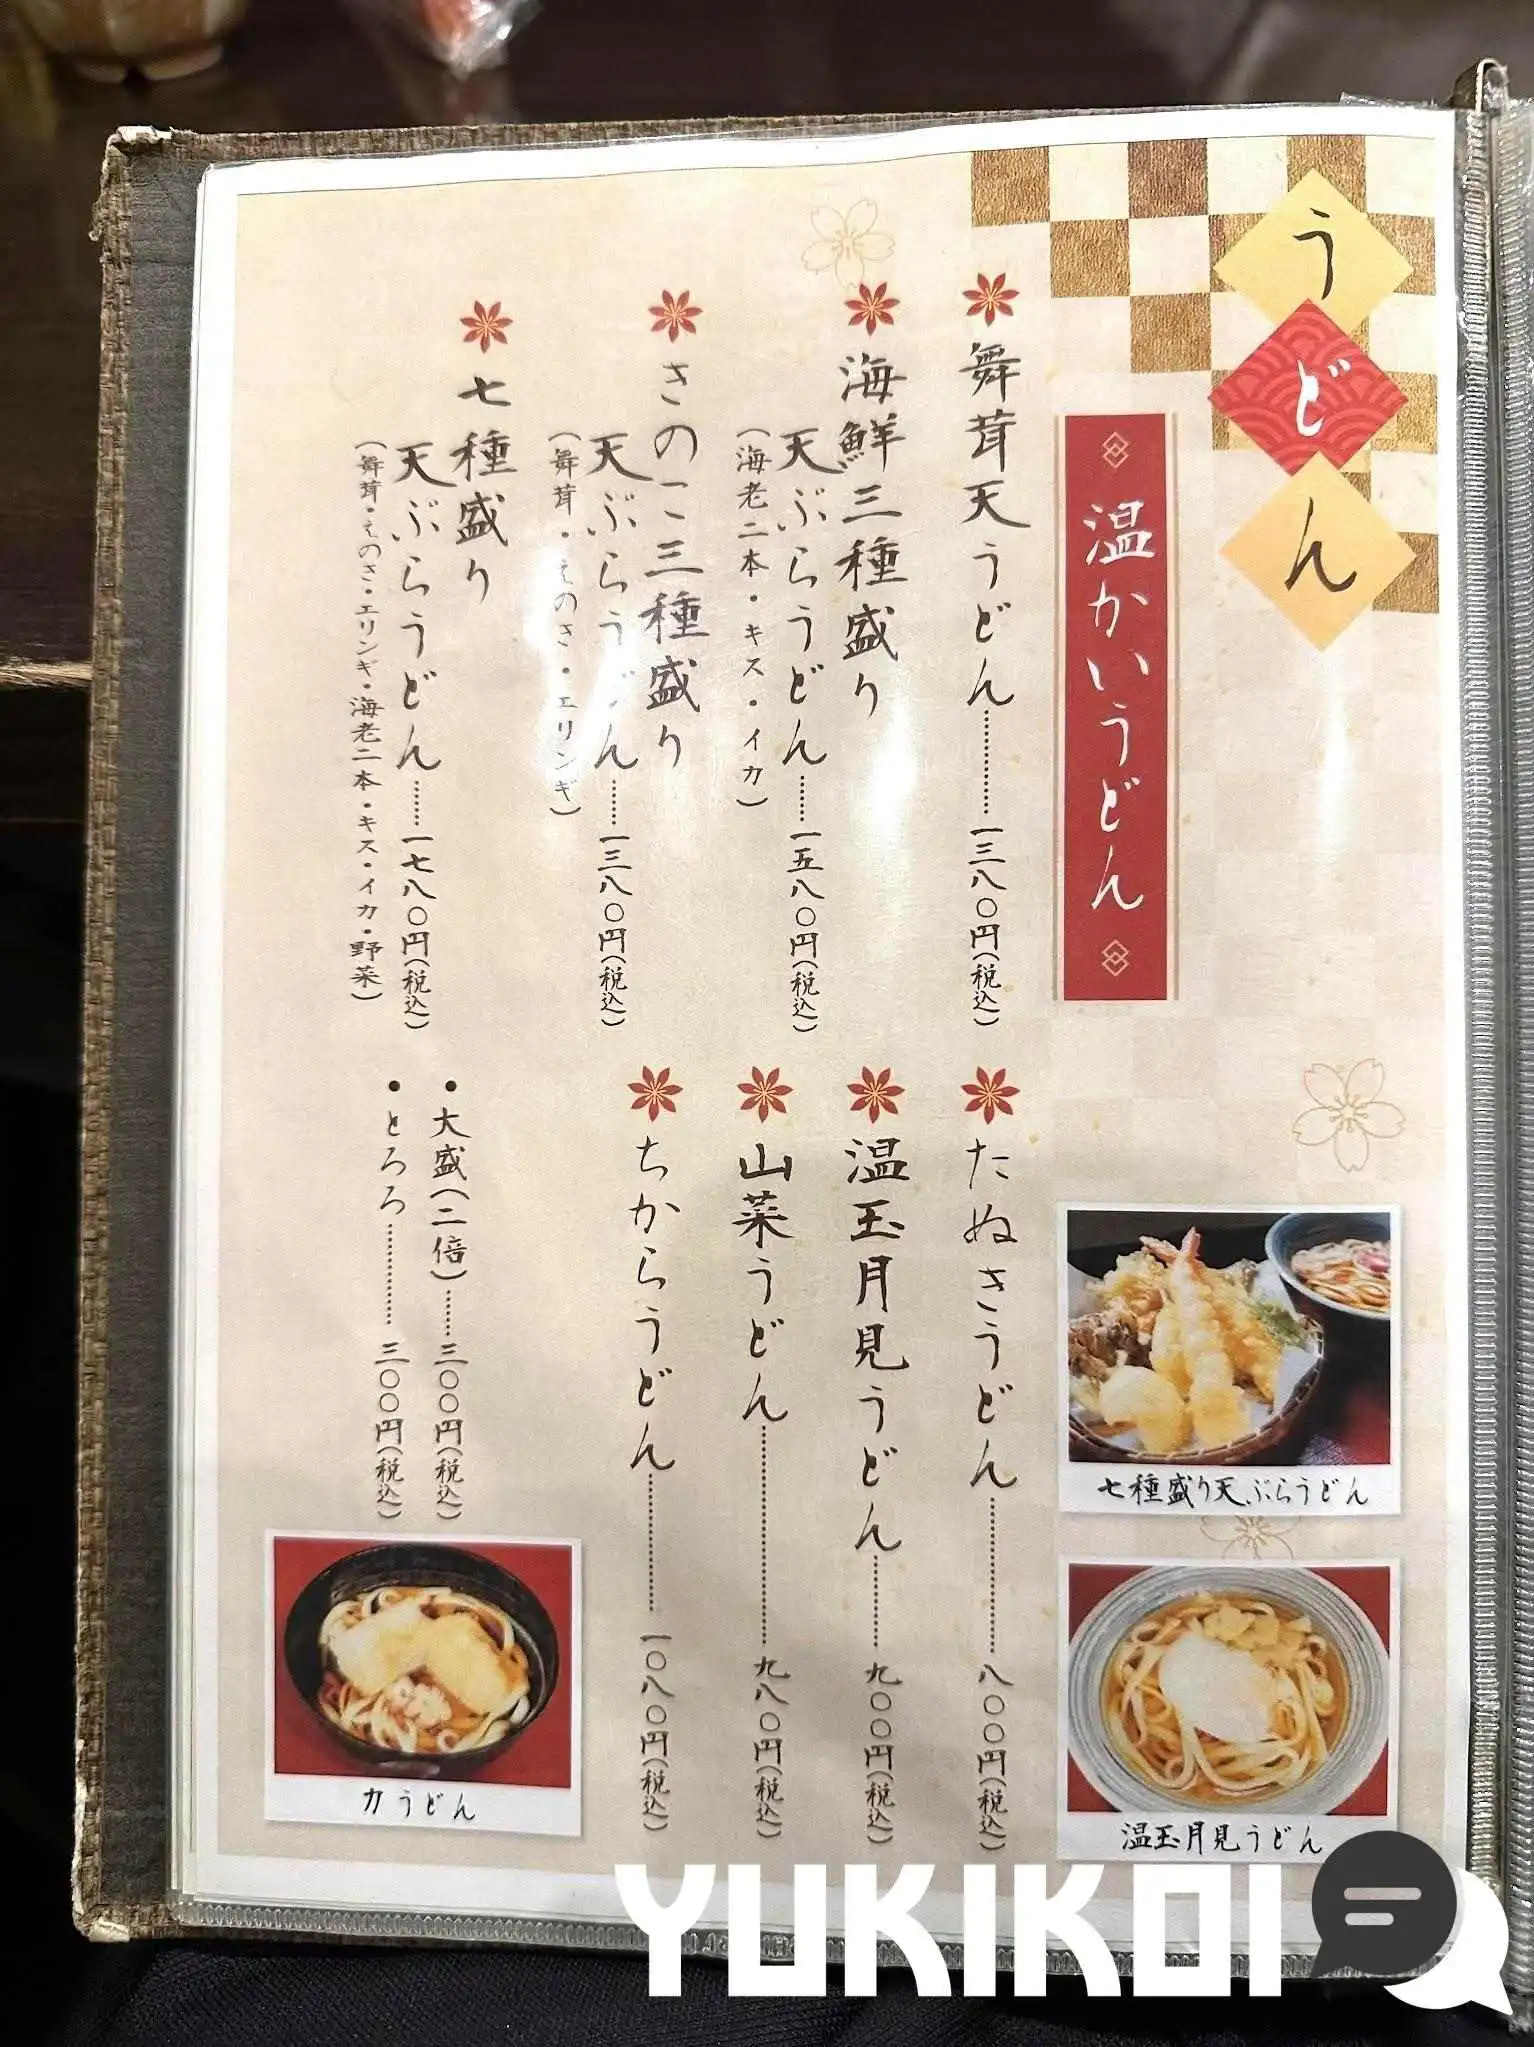 うどん
温かいうどん
舞茸天うどん……一三八〇円(税込)
海鮮三種盛り
天ぷらうどん……一五八〇円(税込)
(海老二本・キス・イカ)
きのこ三種盛り
天ぷらうどん……一三八〇円(税込)
(舞茸・えのき・エリンギ)
七種盛り
天ぷらうどん……一七八〇円(税込)
(舞茸・えのき・エリンギ・海老二本・キス・イカ・野菜)
たぬきうどん……八〇〇円(税込)
温玉月見うどん……九〇〇円(税込)
山菜うどん……九八〇円(税込)
ちからうどん……一〇八〇円(税込)
・大盛(二倍)……三〇〇円(税込)
・とろろ……三〇〇円(税込)
七種盛り天ぷらうどん
温玉月見うどん
力うどん
YUKIKOI